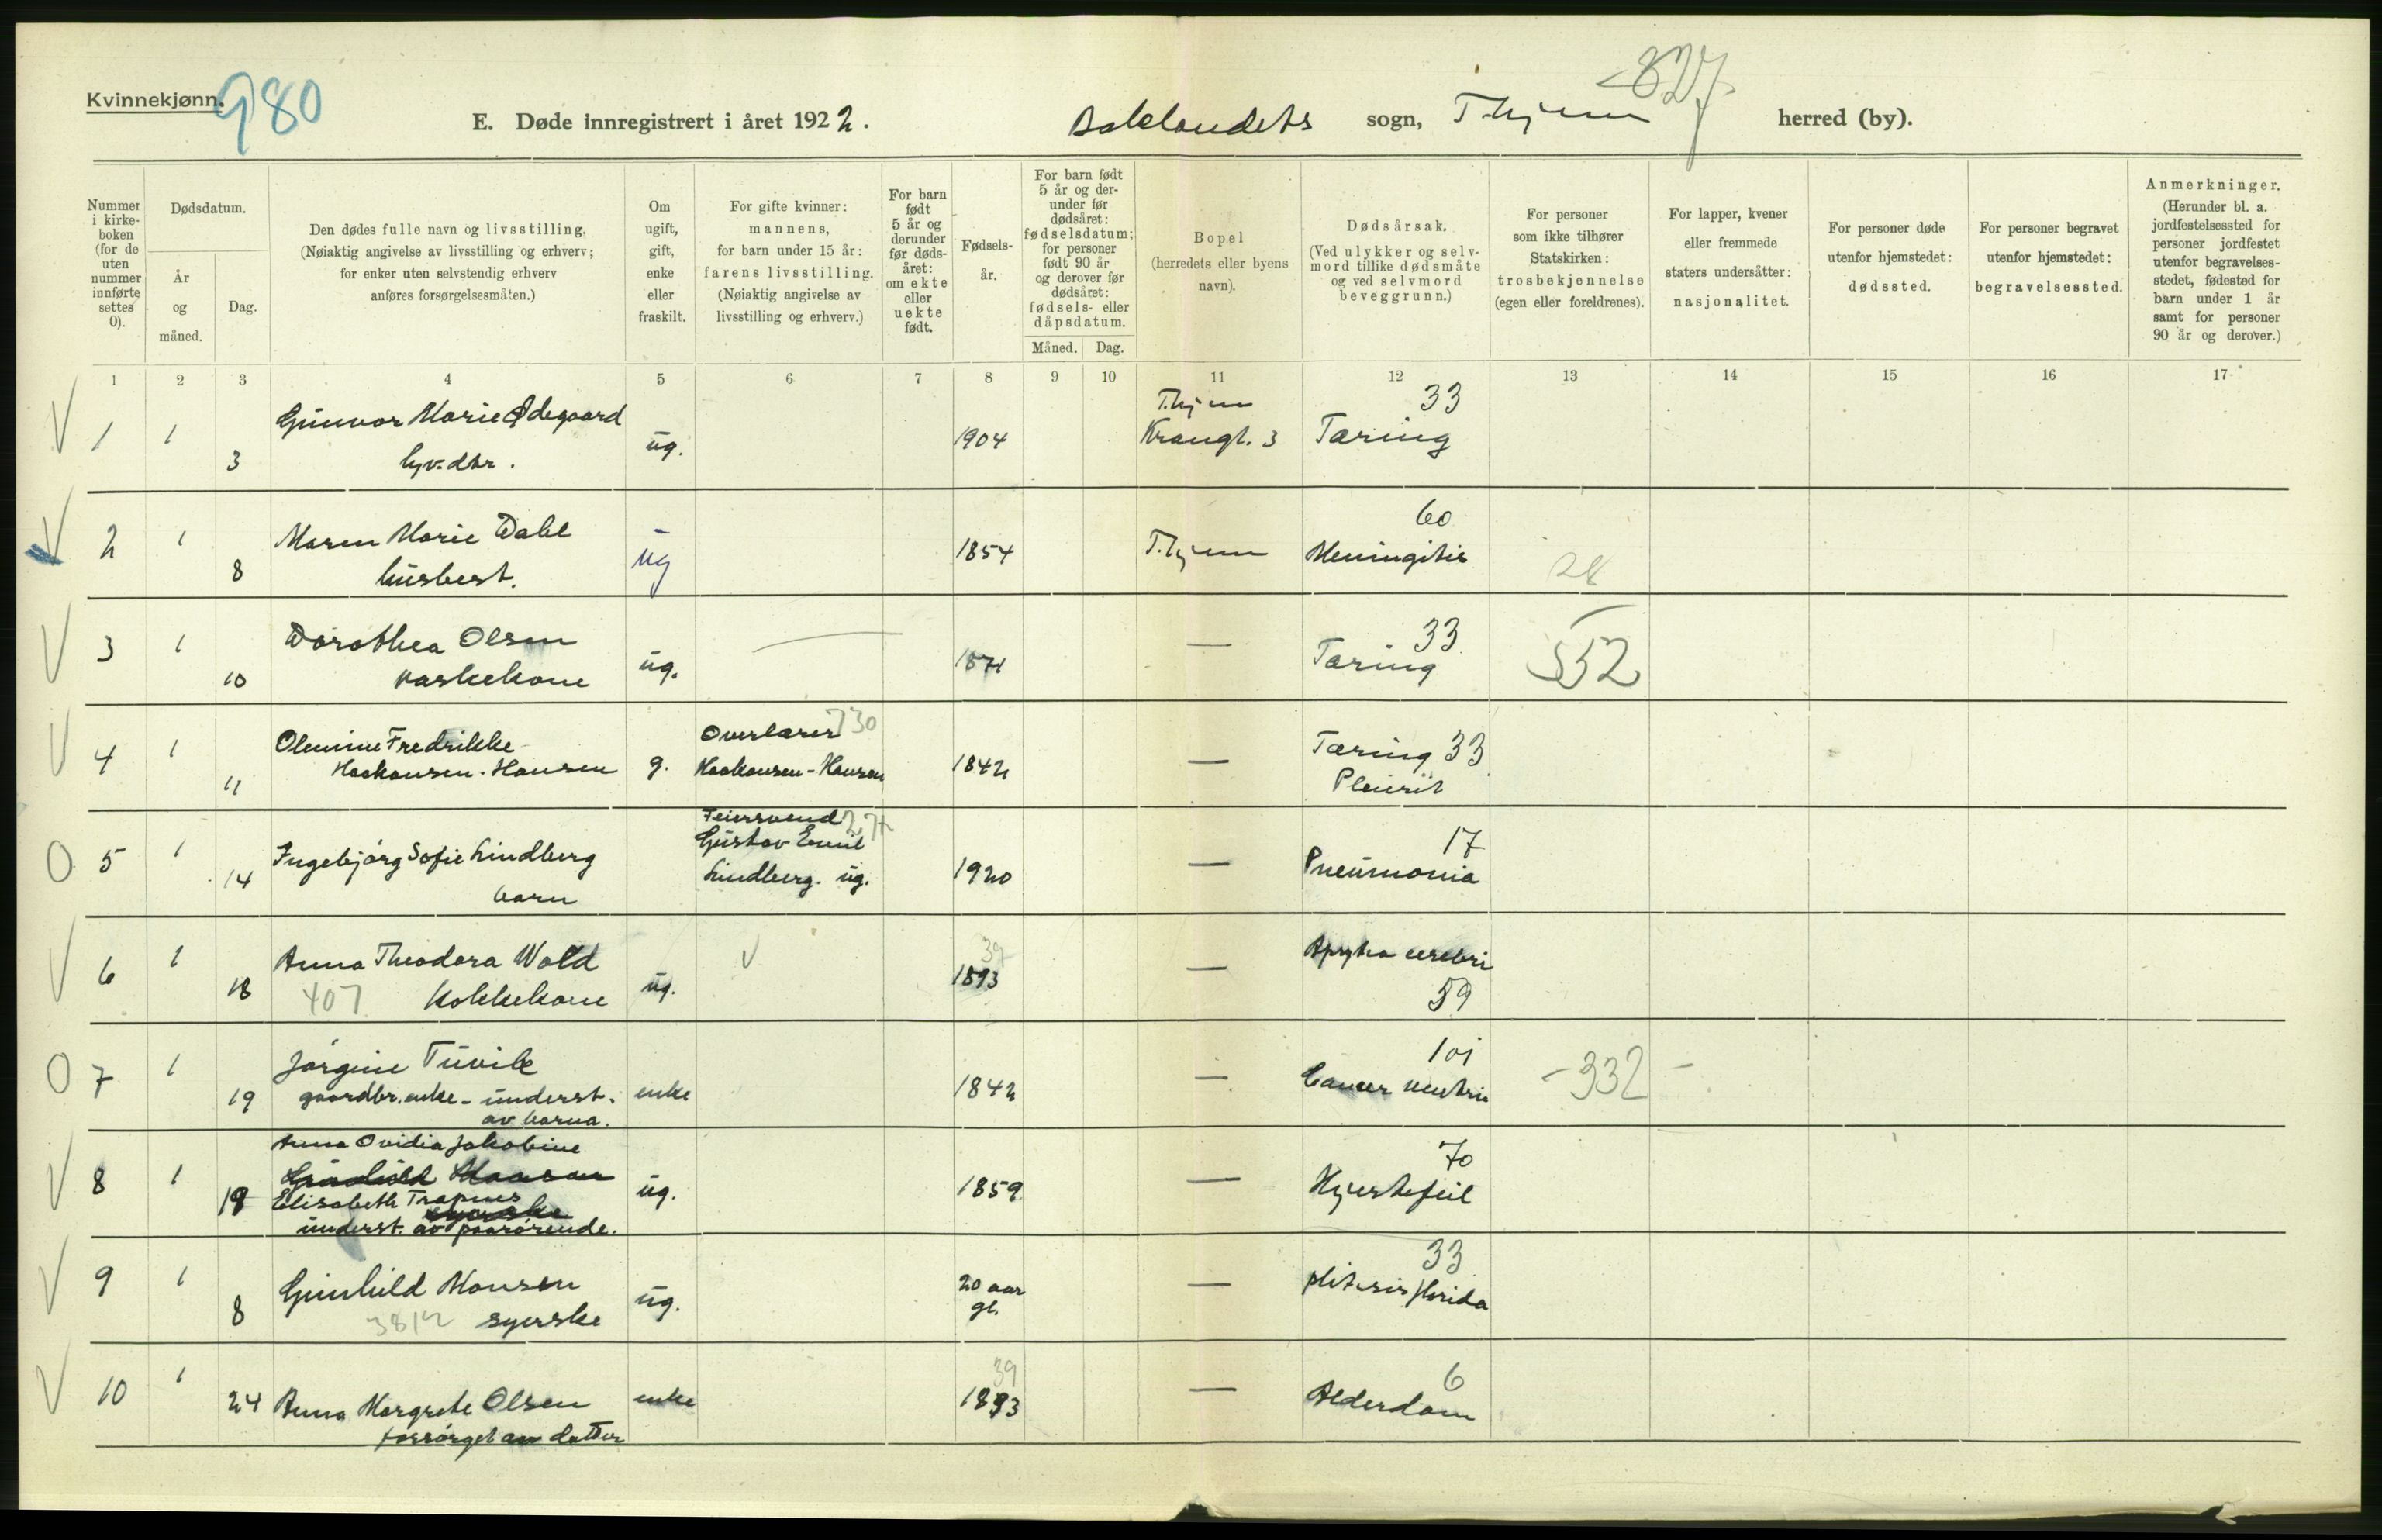 Kvinnekjønn.
980
E. Døde innregistrert i året 1922.
Baklandets sogn, T.hjem herred (by).
327
Nummer i kirke-boken (for de uten nummer innførte settes 0).
Dødsdatum.
År og måned.
Dag.
Den dødes fulle navn og livsstilling.
(Nøiaktig angivelse av livsstilling og erhverv;
for enker uten selvstendig erhverv
anføres forsørgelsesmåten.)
Om
ugift,
gift,
enke
eller
fraskilt.
For gifte kvinner:
mannens,
for barn under 15 år:
farens livsstilling.
(Nøiaktig angivelse av
livsstilling og erhverv.)
For barn
født
5 år og
derunder
før døds-
året:
om ekte
eller
uekte
født.
Fødsels-
år.
For barn født
5 år og der-
under før
dødsåret:
fødselsdatum;
for personer
født 90 år
og derover før
dødsåret:
fødsels- eller
dåpsdatum.
Måned. Dag.
Bopel
(herredets eller byens
navn).
Dødsårsak.
(Ved ulykker og selv-
mord tillike dødsmåte
og ved selvmord
beveggrunn.)
For personer
som ikke tilhører
Statskirken:
trosbekjennelse
(egen eller foreldrenes).
For lapper, kvener
eller fremmede
staters undersåtter:
nasjonalitet.
For personer døde
utenfor hjemstedet:
dødssted.
For personer begravet
utenfor hjemstedet:
begravelsessted.
Anmerkninger.
(Herunder bl. a.
jordfestelsessted for
personer jordfestet
utenfor begravelses-
stedet, fødested for
barn under 1 år
samt for personer
90 år og derover.)
1 2 3 4 5 6 7 8 9 10 11 12 13 14 15 16 17
V 1 1 3 Gunvor Marie Ødegaard ug. 1904 T.hjem Krangl. 3 33 Tæring
V 2 1 8 Maren Marie Dahl husbest. ug 1854 T.hjem 60 Meningitis
V 3 1 10 Dorothea Olsen vaskekone ug. — 33 Tæring 552
V 4 1 11 Olemine Fredrikke
Haakonsen-Hansen g. Overlærer 730 Haakonsen-Hansen 1842 — Tæring 33 Pleurit
O 5 1 14 Ingebjørg Sofie Lindberg
barn Feiersvend Gustav Emil Lindberg. ug. 1920 — 17 Pneumonia
V 6 1 18 Anna Theodora Wold
407 Kokkekone ug. V 39 — cerebri 59
O 7 1 19 Jørgine
gaardbr.enke - underst.
av barna. enke 1842 — 101 Cancer ventric -332 -
V 8 1 19 Anna Ovidia Jakobine
Gunhild Hansen
Elisabeth
syerske
underst. av paarørende. ug. 1859 — 70 Hjertefeil
V 9 1 8 Gunhild Hansen
syerske ug. 20 aar gl. — 33 florida
V 10 1 24 Anna Margrete Olsen
forsørget av datter enke 39 — 6 Alderdom